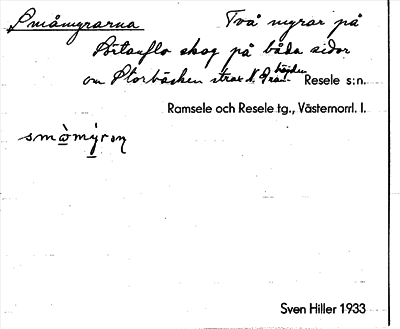 Småmyrarna Två myrar på
Bitarflo skog på båda sidor
om Storbäcken strax N. Gran-höjden Resele s:n.
Ramsele och Resele tg., Västernorrl. l.
Sven Hiller 1933